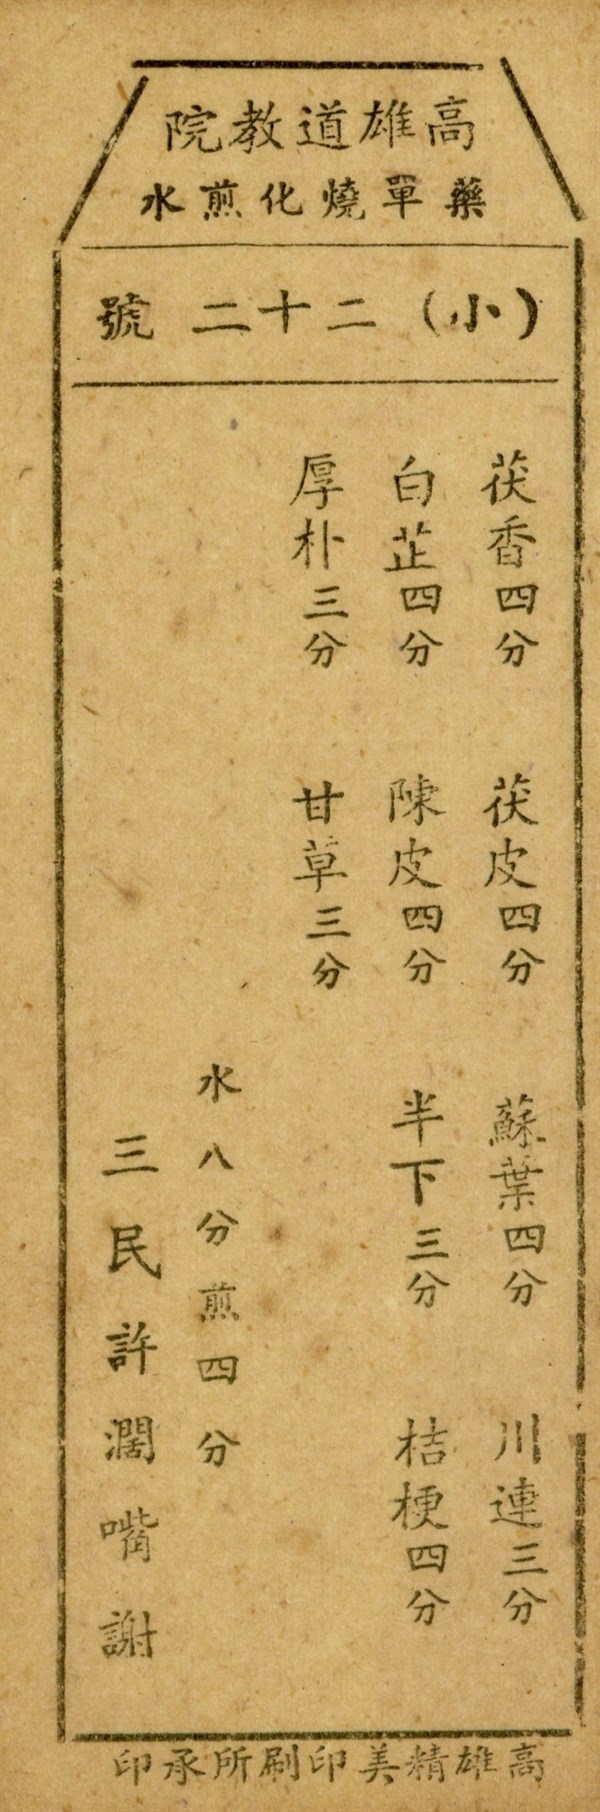 高雄道教院
藥單燒化煎水
(小)二十二號
茯香四分 茯皮四分 蘇葉四分 川連三分
白芷四分 陳皮四分 半下三分 桔梗四分
厚朴三分 甘草三分
水八分煎四分
三民許濶嘴謝
高雄精美印刷所承印